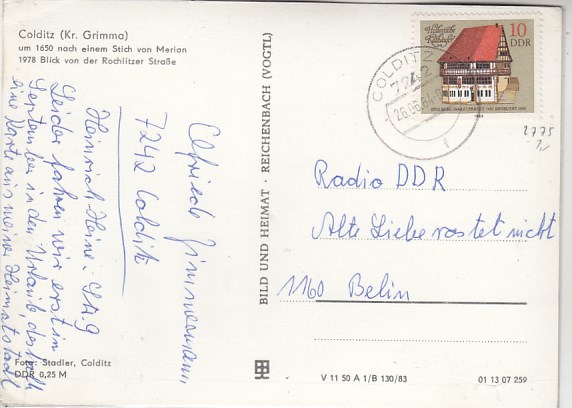 Colditz (Kr. Grimma)
um 1650 nach einem Stich von Merian
1978 Blick von der Rochlitzer Straße
Zimmermann
7242 Colditz
Heinrich-Heine-
Leider fahren wir erst in
September in den Urlaub, deshalb
eine Karte aus meiner Heimatstadt
Foto: Stadler, Colditz
DDR 0,25 M
BILD UND HEIMAT · REICHENBACH (VOGTL)
10
DDR
COLDITZ
7242
2775
Radio DDR
Alte Liebe rostet nicht
1160 Belin
V 11 50 A 1/B 130/83
01 13 07 259